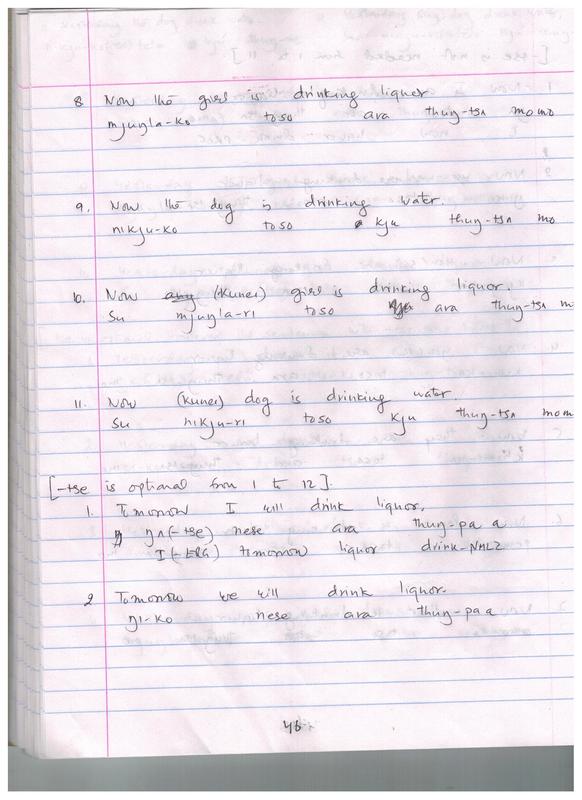 8. Now the girl is drinking liquor
mjuŋla-ko toso ara thuŋ-tsʌ mo mo
9. Now the dog is drinking water.
nikju-ko toso kju thuŋ-tsʌ mo
10. Now any (Kunei) girl is drinking liquor.
su mjuŋla-ri toso ara thuŋ-tsʌ m
11. Now (Kunei) dog is drinking water.
su nikju-ri toso kju thuŋ-tsʌ mom
[-tse is optional from 1 to 12].
1. Tomorrow I will drink liquor,
ŋʌ(-tse) nese ara thuŋ-pa a
I (-ERG) tomorrow liquor drink-NMLZ
2 Tomorrow we will drink liquor.
ŋi-ko nese ara thuŋ-pa a
46